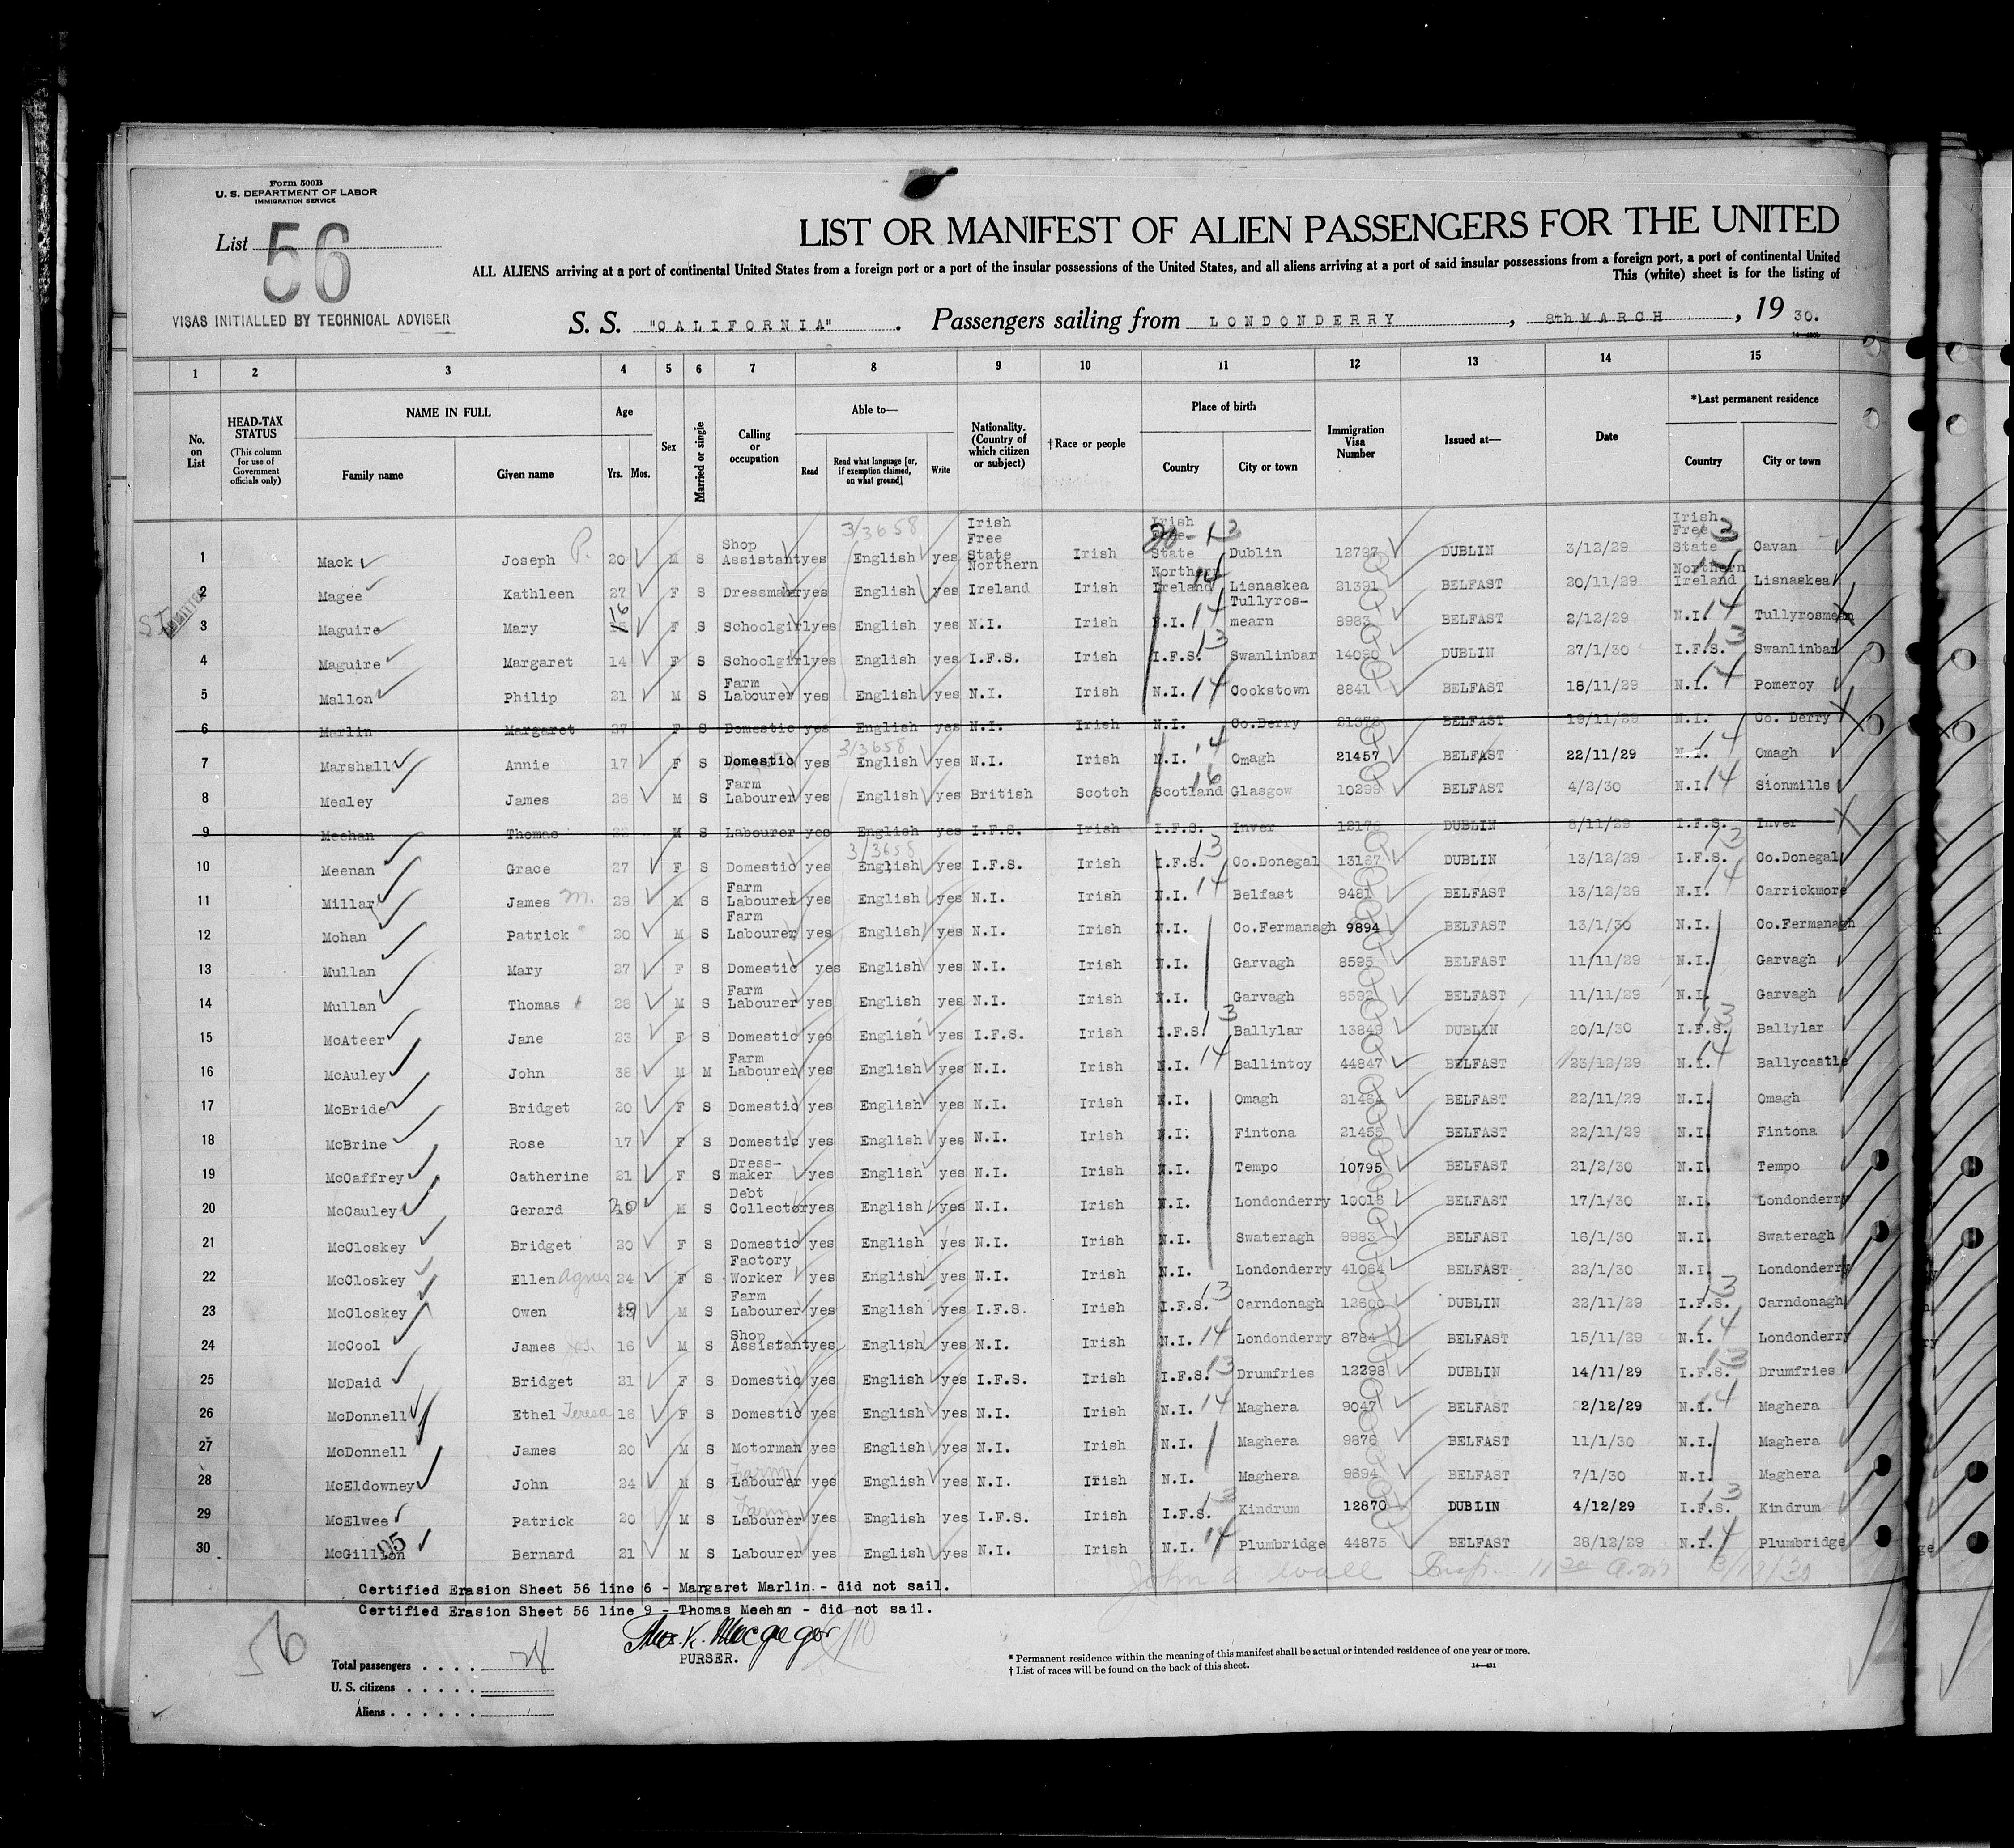 Form 500B
U. S. DEPARTMENT OF LABOR
IMMIGRATION SERVICE
List 56
VISAS INITIALLED BY TECHNICAL ADVISER
LIST OR MANIFEST OF ALIEN PASSENGERS FOR THE UNITED
ALL ALIENS arriving at a port of continental United States from a foreign port or a port of the insular possessions of the United States, and all aliens arriving at a port of said insular possessions from a foreign port, a port of continental United
This (white) sheet is for the listing of
S. S. "CALIFORNIA" . Passengers sailing from LONDONDERRY , 8th MARCH , 19 30.
1 2 3 4 5 6 7 8 9 10 11 12 13 14 15
No. on List HEAD-TAX STATUS (This column for use of Government officials only) NAME IN FULL Family name Given name Age Yrs. Mos. Sex Married or single Calling or occupation Able to— Read Read what language [or, if exemption claimed, on what ground] Write Nationality. (Country of which citizen or subject) †Race or people Place of birth Country City or town Immigration Visa Number Issued at— Date *Last permanent residence Country City or town
3/3658
1 Mack Joseph P. 20 M S Shop Assistant yes English yes Irish Free State Irish Irish Free State 13 Dublin 12787 DUBLIN 3/12/29 Irish Free State 3 Cavan
2 Magee Kathleen 27 F S Dressmaker yes English yes Northern Ireland Irish Northern Ireland 14 Lisnaskea 21391 BELFAST 20/11/29 Northern Ireland 14 Lisnaskea
3 Maguire Mary 16 F S Schoolgirl yes English yes N.I. Irish N.I. 14 Tullyros-mearn 8983 BELFAST 2/12/29 N.I. 14 Tullyrosmearn
4 Maguire Margaret 14 F S Schoolgirl yes English yes I.F.S. Irish I.F.S. 13 Swanlinbar 14090 DUBLIN 27/1/30 I.F.S. 13 Swanlinbar
5 Mallon Philip 21 M S Farm Labourer yes English yes N.I. Irish N.I. 14 Cookstown 8841 BELFAST 18/11/29 N.I. 14 Pomeroy
6 Marlin Margaret 27 F S Domestic yes English yes N.I. Irish N.I. Co.Derry BELFAST 19/11/29 N.I. Co. Derry
3/3658
7 Marshall Annie 17 F S Domestic yes English yes N.I. Irish N.I. 14 Omagh 21457 BELFAST 22/11/29 N.I. 14 Omagh
8 Mealey James 26 M S Farm Labourer yes English yes British Scotch Scotland 16 Glasgow 10299 BELFAST 4/2/30 N.I. 14 Sionmills
9 Meehan Thomas M S Labourer yes English yes I.F.S. Irish I.F.S. Inver DUBLIN 8/11/29 I.F.S. Inver
3/3658
10 Meenan Grace 27 F S Domestic yes English yes I.F.S. Irish I.F.S. 13 Co.Donegal 13167 DUBLIN 13/12/29 I.F.S. 13 Co.Donegal
11 Millar James M. 29 M S Farm Labourer yes English yes N.I. Irish N.I. 14 Belfast 9481 BELFAST 13/12/29 N.I. 14 Carrickmore
12 Mohan Patrick 30 M S Farm Labourer yes English yes N.I. Irish N.I. Co.Fermanagh 9894 BELFAST 13/1/30 N.I. Co.Fermanagh
13 Mullan Mary 27 F S Domestic yes English yes N.I. Irish N.I. Garvagh 8595 BELFAST 11/11/29 N.I. Garvagh
14 Mullan Thomas 28 M S Farm Labourer yes English yes N.I. Irish N.I. Garvagh BELFAST 11/11/29 N.I. Garvagh
15 McAteer Jane 23 F S Domestic yes English yes I.F.S. Irish I.F.S. 13 Ballylar 13849 DUBLIN 20/1/30 I.F.S. 13 Ballylar
16 McAuley John 38 M M Farm Labourer yes English yes N.I. Irish N.I. 14 Ballintoy 44847 BELFAST 23/12/29 N.I. 14 Ballycastle
17 McBride Bridget 20 F S Domestic yes English yes N.I. Irish N.I. Omagh 21464 BELFAST 22/11/29 N.I. Omagh
18 McBrine Rose 17 F S Domestic yes English yes N.I. Irish N.I. Fintona 21455 BELFAST 22/11/29 N.I. Fintona
19 McCaffrey Catherine 21 F S Dress-maker yes English yes N.I. Irish N.I. Tempo 10795 BELFAST 21/2/30 N.I. Tempo
20 McCauley Gerard 20 M S Debt Collector yes English yes N.I. Irish N.I. Londonderry 10018 BELFAST 17/1/30 N.I. Londonderry
21 McCloskey Bridget 20 F S Domestic yes English yes N.I. Irish N.I. Swateragh 9983 BELFAST 16/1/30 N.I. Swateragh
22 McCloskey Ellen Agnes 24 F S Factory Worker yes English yes N.I. Irish N.I. Londonderry 41084 BELFAST 22/1/30 N.I. Londonderry
23 McCloskey Owen 19 M S Farm Labourer yes English yes I.F.S. Irish I.F.S. 13 Carndonagh 12600 DUBLIN 22/11/29 I.F.S. 13 Carndonagh
24 McCool James 16 M S Shop Assistant yes English yes N.I. Irish N.I. 14 Londonderry 8784 BELFAST 15/11/29 N.I. 14 Londonderry
25 McDaid Bridget 21 F S Domestic yes English yes I.F.S. Irish I.F.S. 13 Drumfries 12298 DUBLIN 14/11/29 I.F.S. 13 Drumfries
26 McDonnell Ethel Teresa 18 F S Domestic yes English yes N.I. Irish N.I. 14 Maghera 9047 BELFAST 2/12/29 N.I. 14 Maghera
27 McDonnell James 20 M S Motorman yes English yes N.I. Irish N.I. Maghera 9876 BELFAST 11/1/30 N.I. Maghera
28 McEldowney John 24 M S Farm Labourer yes English yes N.I. Irish N.I. Maghera 9694 BELFAST 7/1/30 N.I. Maghera
29 McElwee Patrick 20 M S Farm Labourer yes English yes I.F.S. Irish I.F.S. 13 Kindrum 12870 DUBLIN 4/12/29 I.F.S. 13 Kindrum
30 McGillion 95 Bernard 21 M S Labourer yes English yes N.I. Irish N.I. 14 Plumbridge 44875 BELFAST 28/12/29 N.I. 14 Plumbridge
John A. Wall Insp. 11 30 a.m.
Certified Erasion Sheet 56 line 6 - Margaret Marlin - did not sail.
Certified Erasion Sheet 56 line 9 - Thomas Meehan - did not sail.
56
PURSER.
Total passengers . . . . 28
U. S. citizens . . . . .
Aliens . . . . . .
* Permanent residence within the meaning of this manifest shall be actual or intended residence of one year or more.
† List of races will be found on the back of this sheet.